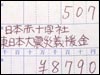 507
日本赤十字社
東日本大震災義援金
¥8790